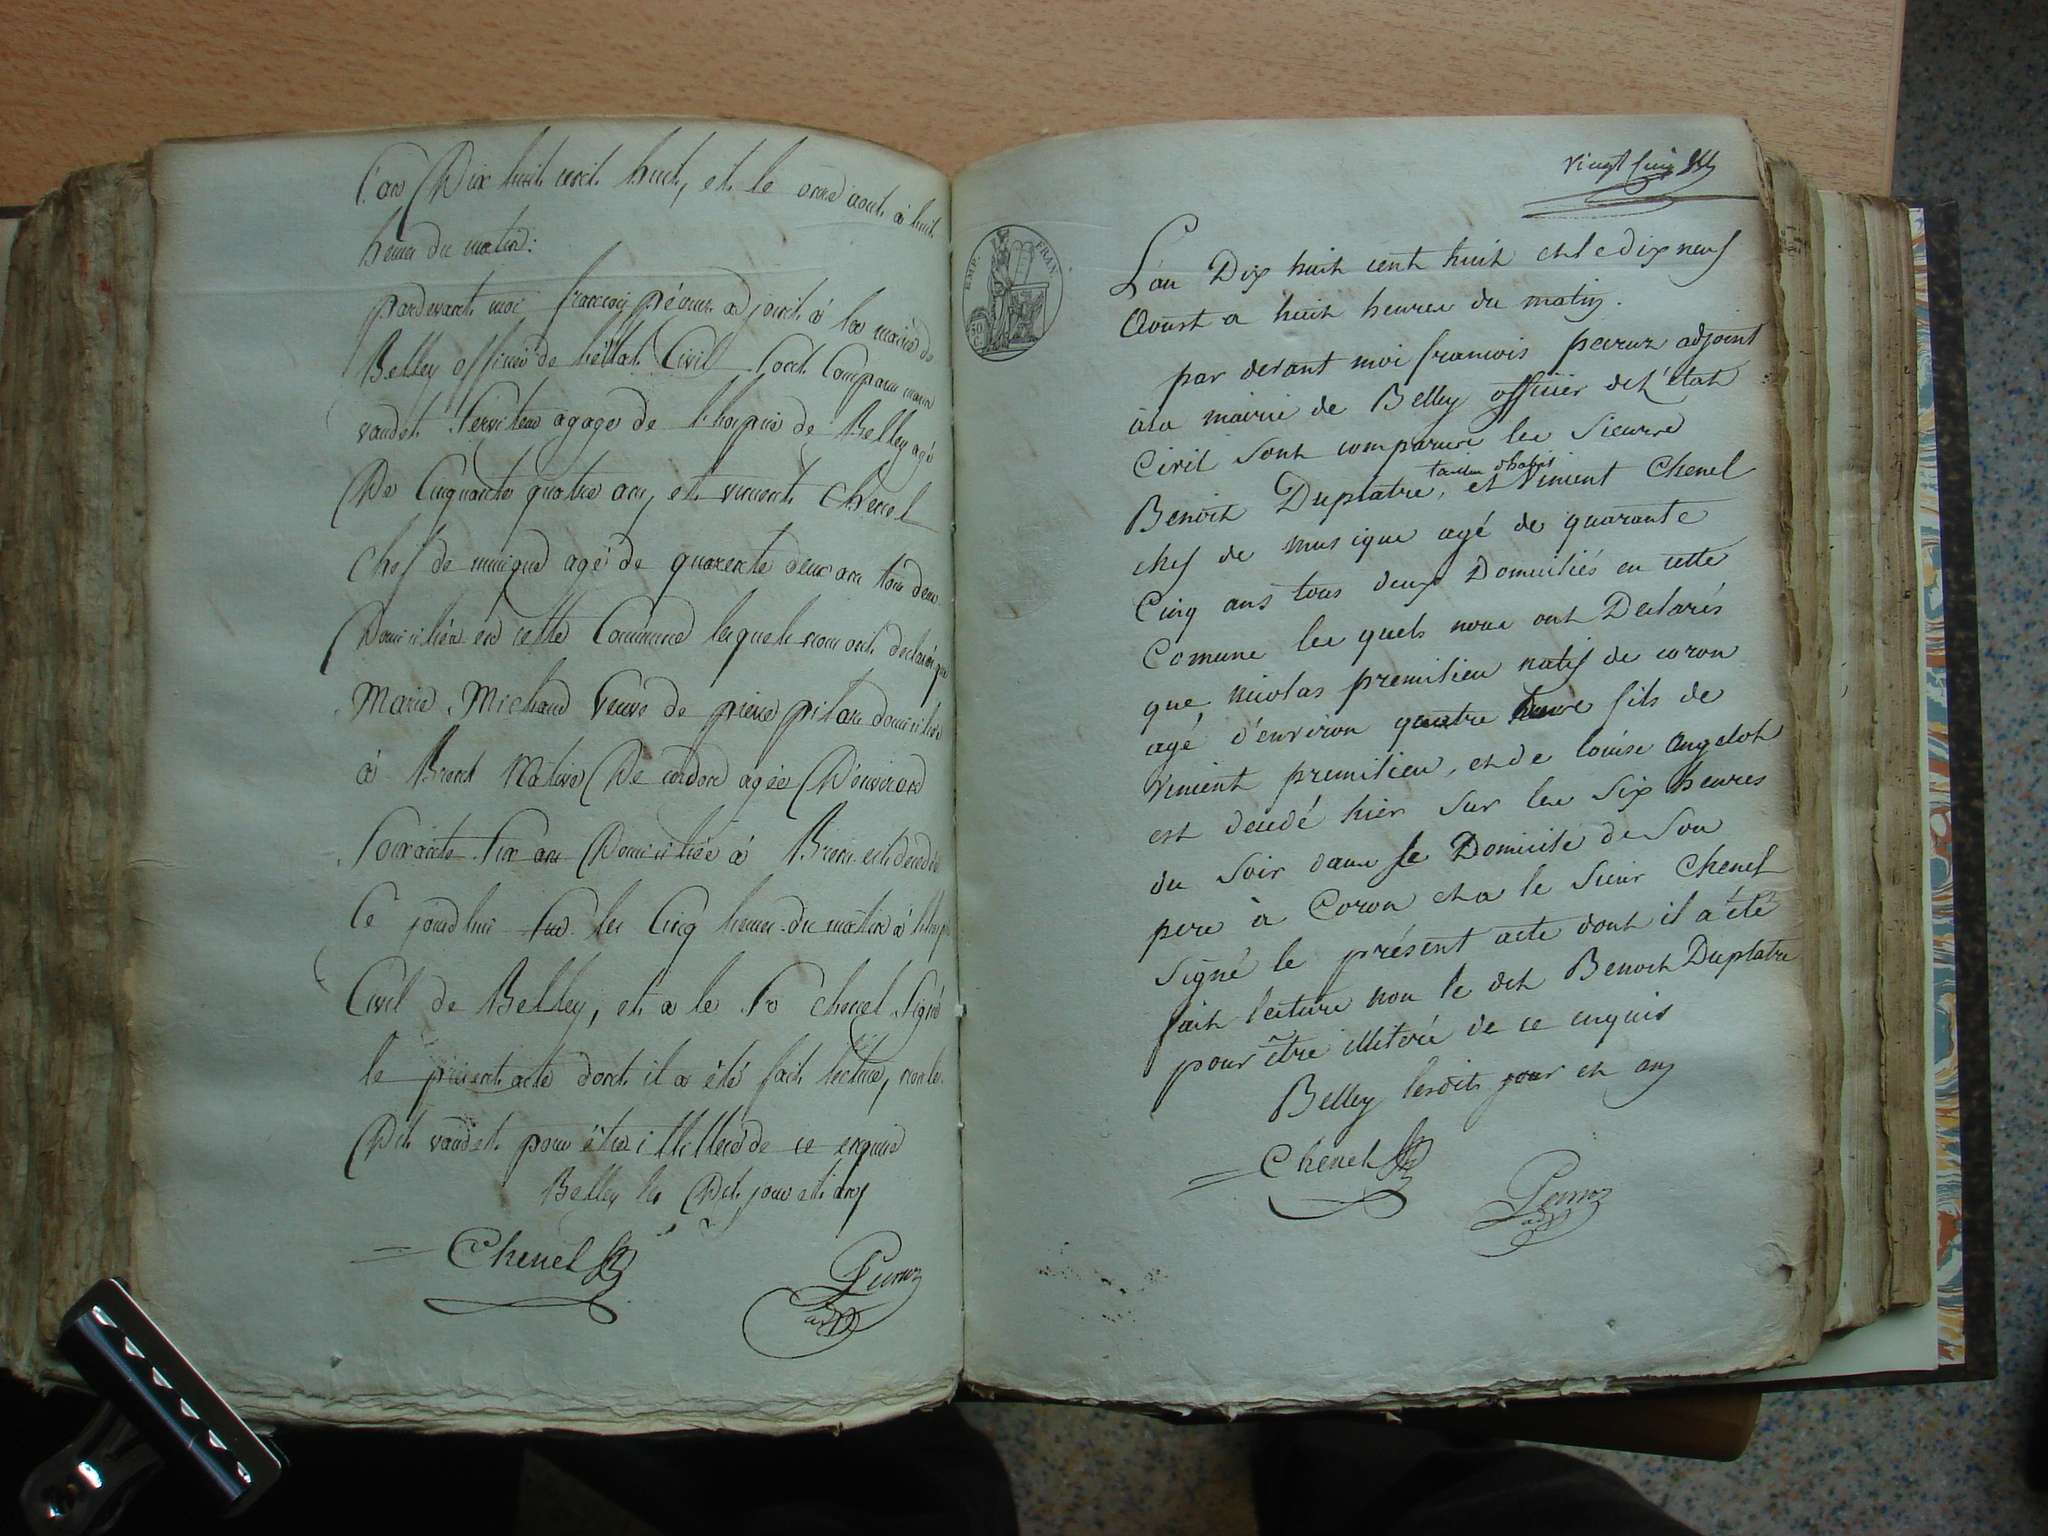 L'an Dix huit cent huit, et le onze aout à huit
heures du matin:
pardevant moi françois péeruz adjoint à la mairie de
Belley officier de l'état Civil sont Comparus
vaudet Serviteur agagé de l'hospice de Belley agé
De Cinquante quatre ans, et vincent Chenel
chef de musique agé de quarente deux ans tous deux
Domiciliés en cette Commune lesquels nous ont declaré que
Marie Michaud Veuve de pierre pitan domiciliée
à Brens Native De cordon agée D'environ
Soixante Six ans Domiciliée à Brens est decedée
Ce jourdhui sur les Cinq heures du matin à l'hospice
Civil de Belley, et a le Sr chenel Signé
le present acte dont il a été fait lecture, non le
Dit vaudet pour être illitteré de ce enquis
Belley les Dits jour et an
Chenel
Peruz
adjt
vingt cinq
L'an Dix huit cent huit et le dix neuf
Aoust a huit heures du matin.
par devant moi francois peeruz adjoint
a la mairie de Belley officier de l'état
Civil sont comparus les Sieurs
tailleur d'habits
Benoit Duplatre, et Vincent Chenel
chef de musique agé de quarante
Cinq ans tous deux Domiciliés en cette
Comune les quels nous ont Declarés
que nicolas premilieu natif de coron
agé d'environ quatre fils de
vincent premilieu, et de louise angelot
est decedé hier sur les six heures
du soir dans le Domicile de Son
pere à Coron et a le sieur Chenel
Signé le présent acte dont il a été
fait lecture non le dit Benoit Duplatre
pour être illiteré de ce enquis
Belley lesdits jour et an
Chenel
Peruz
adjt
EMP. FRAN.
50
C.